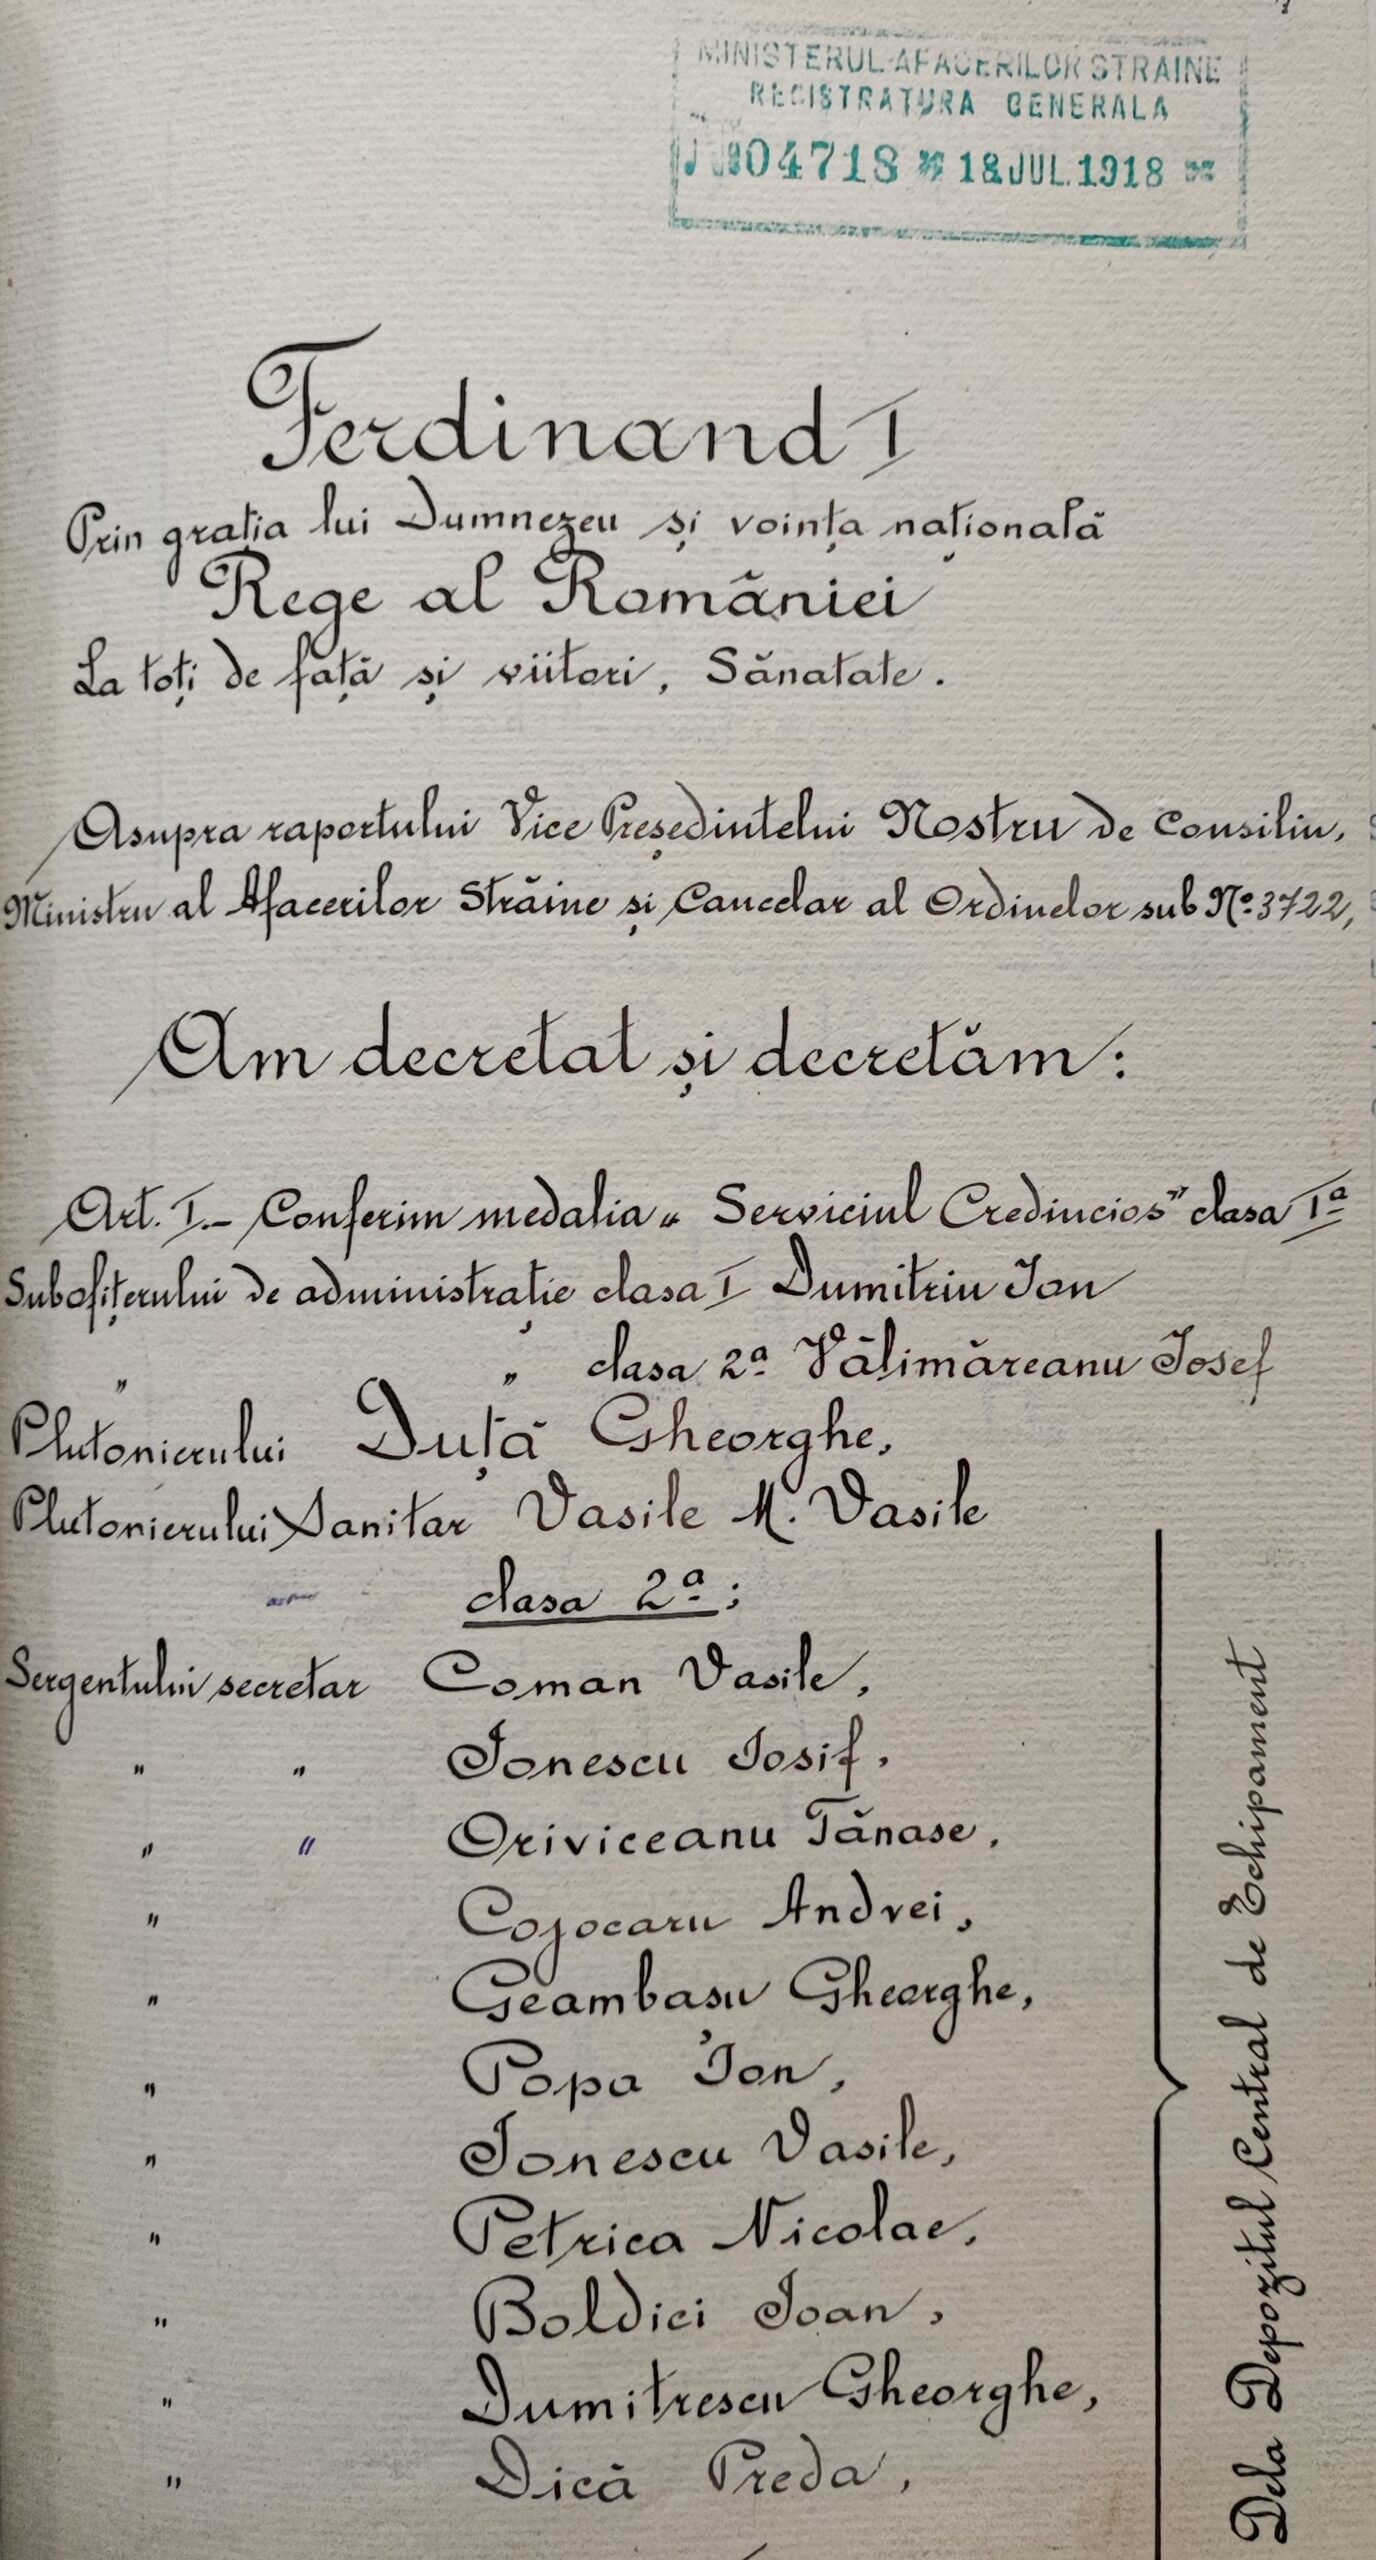 MINISTERUL AFACERILOR STRAINE
REGISTRATURA GENERALA
04718 * 18 JUL. 1918 *
Ferdinand I
Prin grația lui Dumnezeu și voința națională
Rege al României
La toți de față și viitori, Sănatate.
Asupra raportului Vice Președintelui Nostru de Consiliu,
Ministru al Afacerilor Străine și Cancelar al Ordinelor sub No. 3722,
Am decretat și decretăm:
Art. I.- Conferim medalia „Serviciul Credincios" clasa Iª
Subofițerului de administrație clasa I Dumitriu Ion
„ „ clasa 2ª Vălimăreanu Iosef
Plutonierului Duță Gheorghe,
Plutonierului Sanitar Vasile M. Vasile
clasa 2ª;
Sergentului secretar Coman Vasile,
„ „ Ionescu Iosif,
„ „ Oriviceanu Tănase,
„ Cojocaru Andrei,
„ Geambașu Gheorghe,
„ Popa Ion,
„ Ionescu Vasile,
„ Petrica Nicolae,
„ Boldici Ioan,
„ Dumitrescu Gheorghe,
„ Dică Preda,
Dela Depozitul Central de Echipament